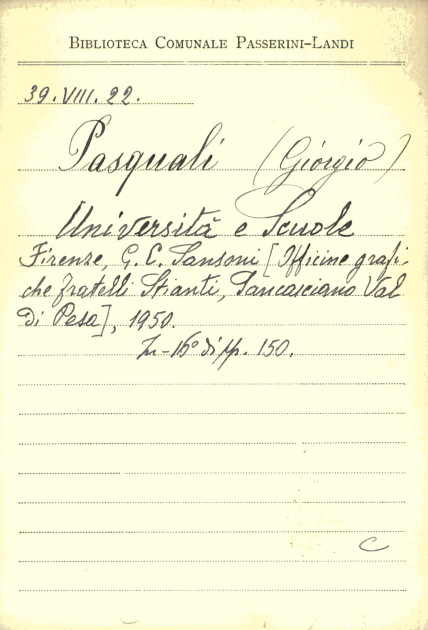 BIBLIOTECA COMUNALE PASSERINI-LANDI
39.VIII.22.
Pasquali (Giorgio)
Università e Scuole
Firenze, G. C. Sansoni [Officine grafi-
che fratelli Stianti, Sancasciano Val
di Pesa], 1950.
In-16° di pp. 150.
C